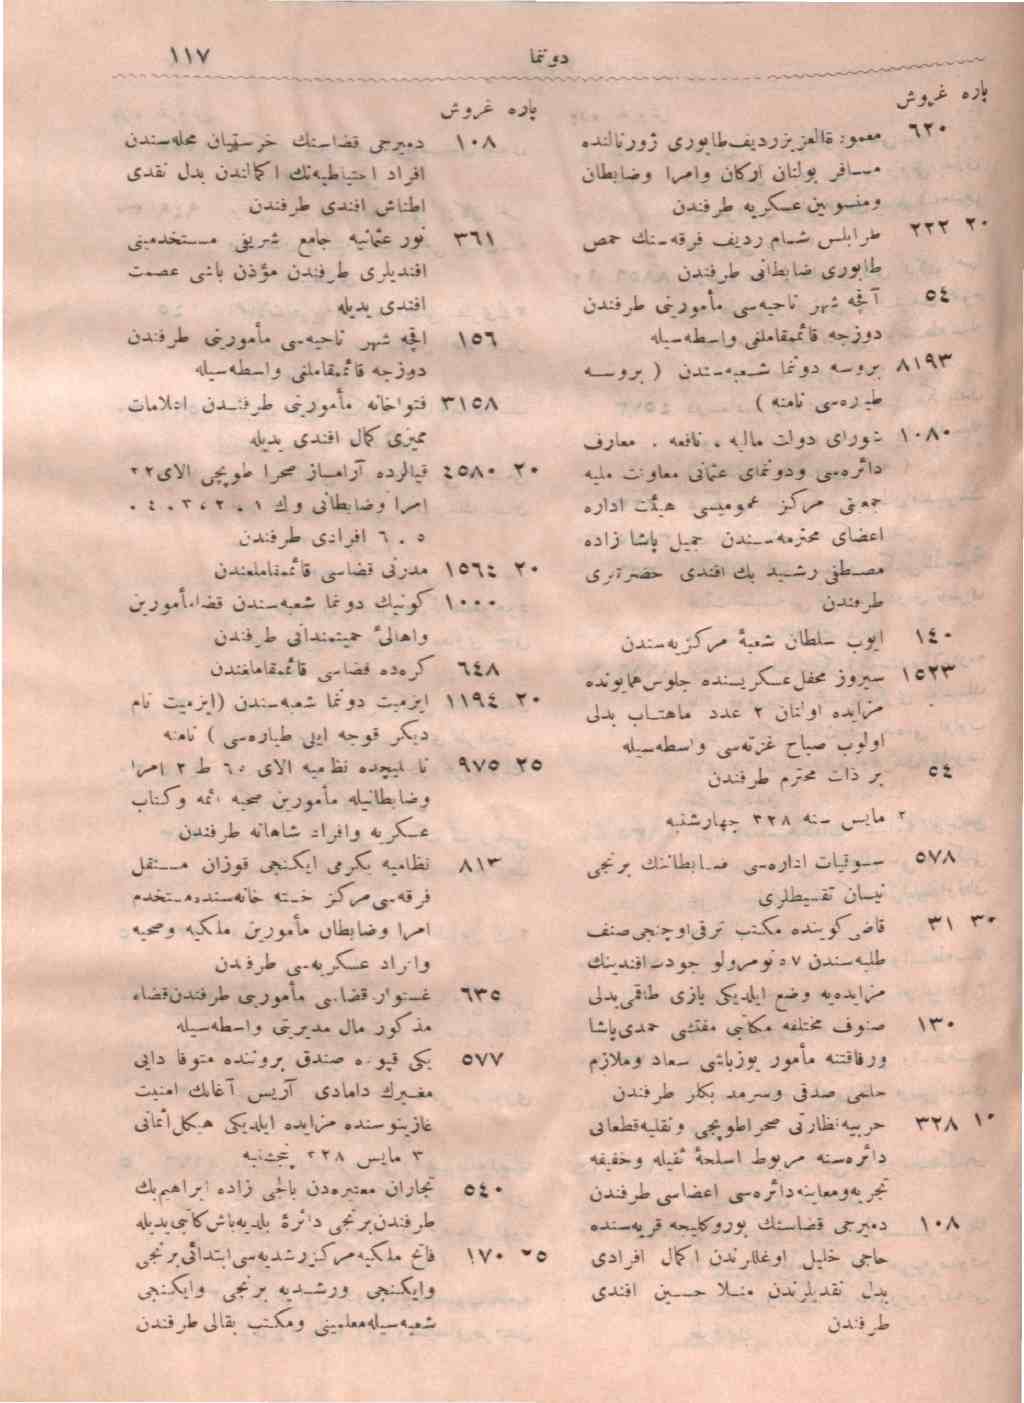 دوتنما ١١٧
پاره غروش
٦٢٠ معمورةالعزیز ردیف طابوری ژورنالنده
مسافر بولنان ارکان وامرا وضابطان
ومنسوبین عسکریه طرفندن
٢٠ ٢٢٢ طرابلس شام ردیف فرقه‌سنك حمص
طابوری ضابطانی طرفندن
٥٤ آقچه شهر ناحیه‌سی مأمورینی طرفندن
دوزجه قائممقاملغی واسطه‌سیله
٨١٩٣ بروسه دوتنما شعبه‌سندن ( بروسه
طیاره‌سی نامنه )
١٠٨٠ شورای دولت مالیه ، نافعه ، معارف
دائره‌سی ودونمای عثمانی معاونت ملیه
جمعیتی مرکز عمومیسی هیئت اداره
اعضای محترمه‌سندن جمیل پاشا زاده
مصطفی رشید بك افندی حضرتلری
طرفندن
١٤٠ ایوب سلطان شعبۀ مرکزیه‌سندن
١٥٢٣ سیروز محفل عسکریسنده جلوس همایونده
مزایده اولنان ٢ عدد ماهتاب بدلی
اولوب صباح غزته‌سی واسطه‌سیله
٥٤ بر ذات محترم طرفندن
٢ مایس سنه ٣٢٨ چهارشنبه
٥٧٨ سوقیات اداره‌سی ضابطاننك برنجی
نیسان تقسیطلری
٣٠ ٣١ قاضی‌کوینده مکتب ترقی اوچنجی صنف
طلبه‌سندن ٥٧ نومرولو جودت افندینك
مزایده‌یه وضع ایلدیکی یازی طاقمی بدلی
١٣٠ صنوف مختلفه مکاتبی مفتشی حمدی پاشا
ورفاقتنه مأمور یوزباشی سعاد وملازم
حلمی صدقی وسرمد بکلر طرفندن
١٠ ٣٢٨ حربیه نظارتی صحرا طوپجی ونقلیه قطعاتی
دائره‌سنه مربوط اسلحۀ ثقیله وخفیفه
تجربه ومعاینه دائره‌سی اعضاسی طرفندن
١٠٨ دمیرجی قضاسنك بوروکلیجه قریه‌سنده
حاجی خلیل اوغللرندن اکمال افرادی
بدل نقدیلرندن منلا حسین افندی
طرفندن
پاره غروش
١٠٨ دمیرجی قضاسنك خرستیان محله‌سندن
افراد احتیاطیه‌نك اکمالندن بدل نقدی
اطناش افندی طرفندن
٣٦١ نور عثمانیه جامع شریفی مستخدمینی
افندیلری طرفندن مؤذن باشی عصمت
افندی یدیله
١٥٦ اقچه شهر ناحیه‌سی مأمورینی طرفندن
دوزجه قائممقاملغی واسطه‌سیله
٣١٥٨ فتواخانه مأمورینی طرفندن اعلامات
ممیزی کمال افندی یدیله
٢٠ ٤٥٨٠ قیالرده آرامساز صحرا طوپچی الای ٢٢
امرا وضابطانی وك ١ ، ٢ ، ٣ ، ٤ ،
٥ ، ٦ افرادی طرفندن
٢٠ ١٥٦٤ مدرنی قضاسی قائممقاملغندن
١٠٠٠ کونیك دوتنما شعبه‌سندن قضا مأمورین
واهالئ حمیتمندانی طرفندن
٦٤٨ کرده قضاسی قائممقاملغندن
٢٠ ١١٩٤ ایزمیت دوتنما شعبه‌سندن (ایزمیت نام
دیکر قوجه ایلی طیاره‌سی ) نامنه
٢٥ ٩٧٥ نظامیه الای ٦٥ ط ٣ امرا
وضابطانیله مأمورین صحیه ائمه وکتاب
عسکریه وافراد شاهانه طرفندن
٨١٣ نظامیه یکرمی ایکنجی قوزان مستقل
فرقه‌سی مرکز خسته خانه‌سنده مستخدم
امرا وضابطان مأمورین ملکیه وصحیه
وافراد عسکریه‌سی طرفندن
٦٣٥ قضاسی مأمورینی طرفندن قضاء
مذکور مال مدیریتی واسطه‌سیله
٥٧٧ یکی قپوده صندق بروننده متوفا دایی
مغیرك دامادی آریس آغانك امنیت
غازینوسنده مزایده ایلدیکی هیکل اثمانی
٣ مایس ٣٢٨ پنجشنبه
٥٤٠ تجاران معتبره‌دن بالجی زاده ابراهیم بك
طرفندن برنجی دائرۀ بلدیه باش کاتبی یدیله
٢٥ ١٧٠ فاتح ملکیه مرکز رشدیه‌سی ابتدائی برنجی
وایکنجی ورشدیه برنجی وایکنجی
شعبه‌سیله معلمینی ومکتب بقالی طرفندن